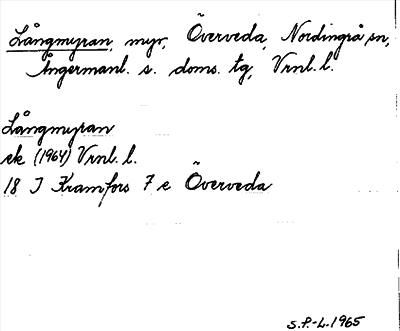 Långmyran, myr, Överveda, Nordingrå sn,
Ångermanl. s. doms. tg, Vrnl. l.
Långmyran
ek (1964) Vrnl. l.
18 J Kramfors 7 e Överveda
S.P.-L. 1965